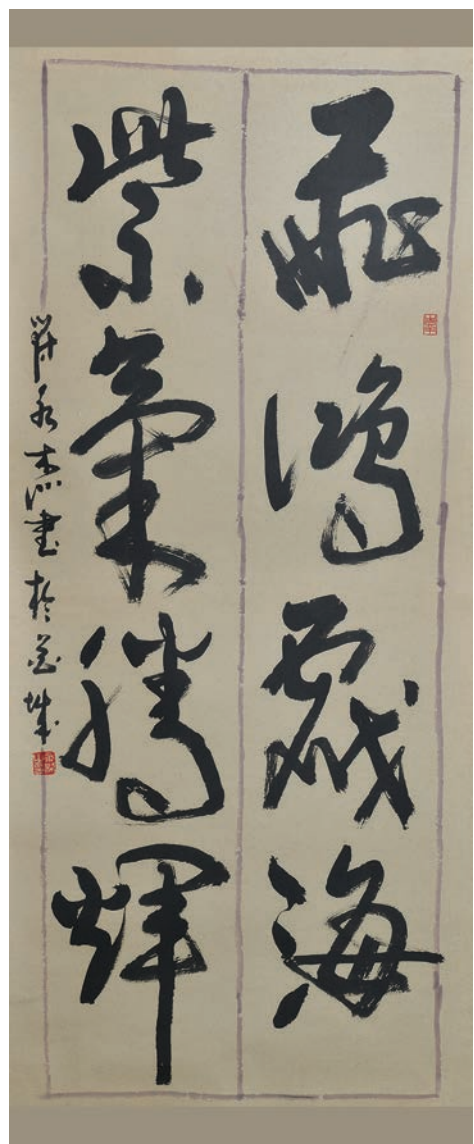 飛鴻戲海
紫氣騰煇
書於